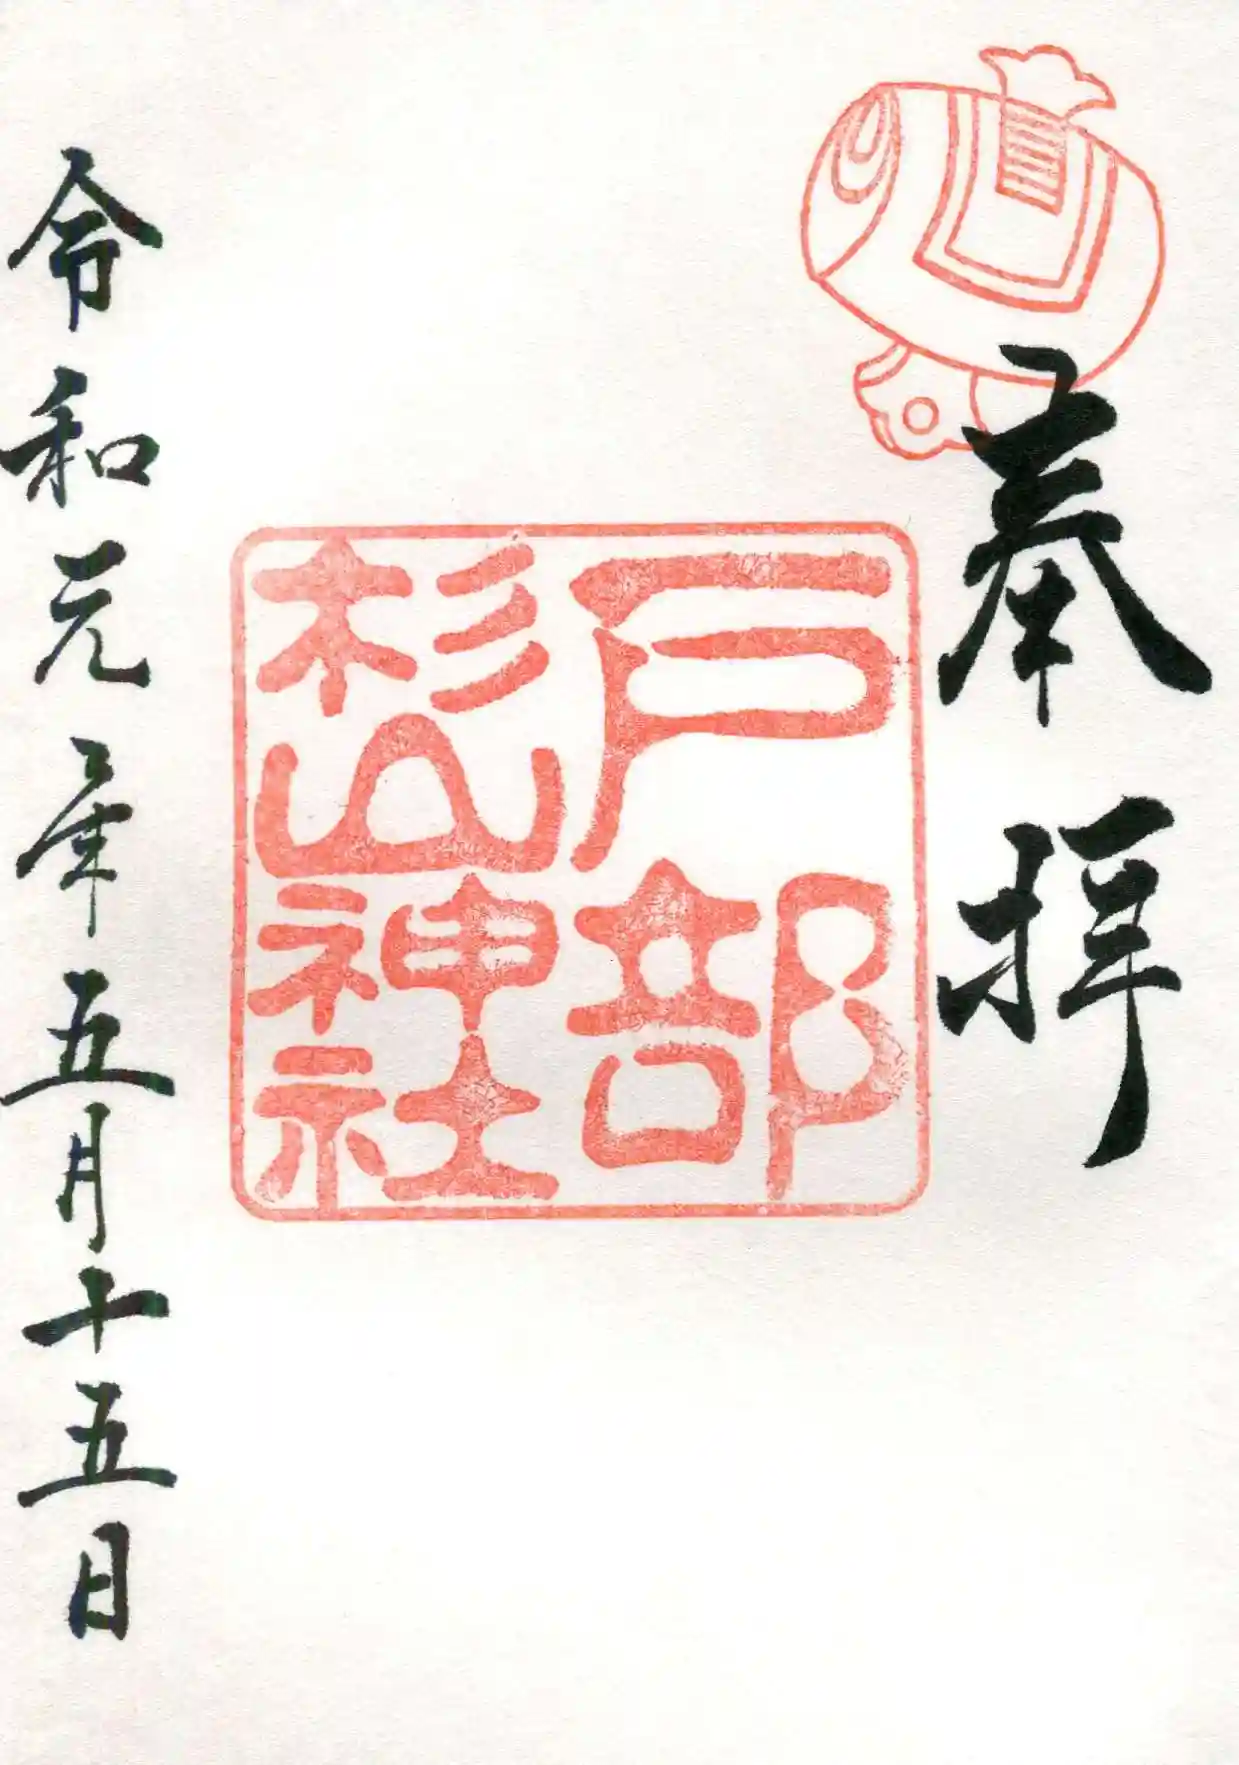 奉拝
戸部
杉山
神社
令和元年五月十五日